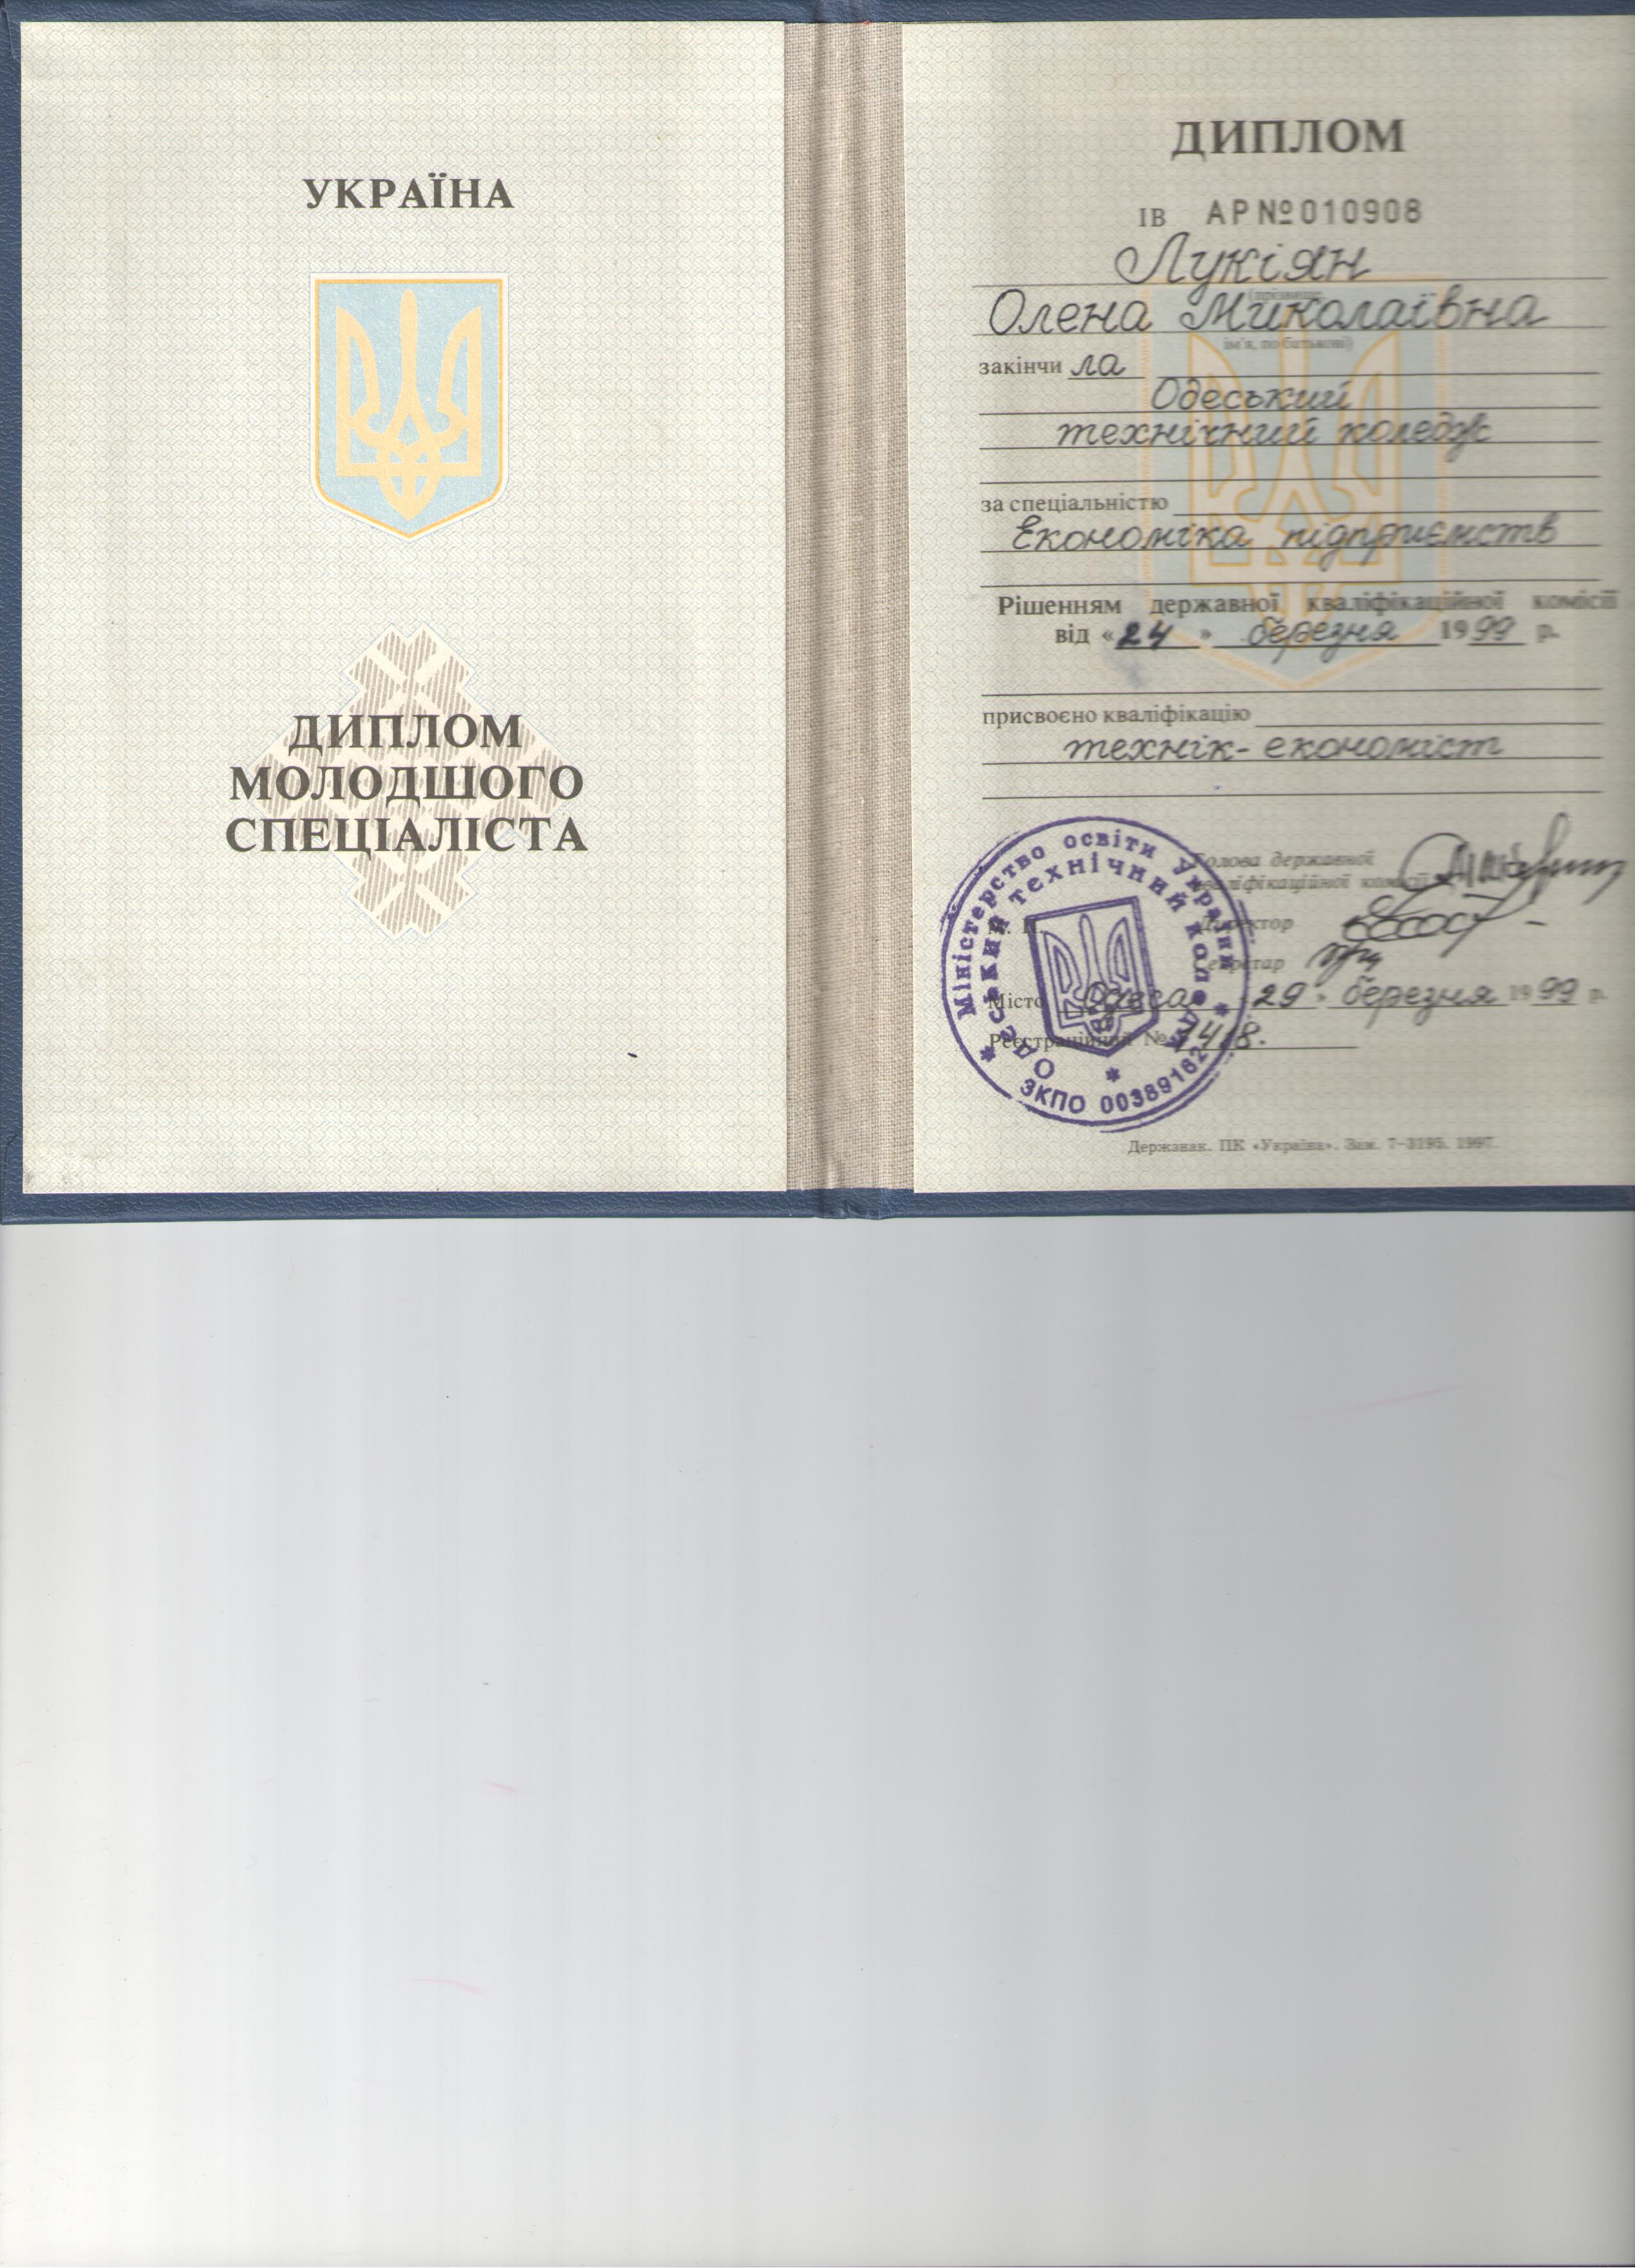 УКРАЇНА
ДИПЛОМ
МОЛОДШОГО
СПЕЦІАЛІСТА
ДИПЛОМ
ІВ АР№010908
Лукіян
(прізвище,
Олена Миколаївна
ім'я, по батькові)
закінчи ла
Одеський
технічний коледж
за спеціальністю
Економіка підприємств
Рішенням державної кваліфікаційної комісії
від «24» березня 1999 р.
присвоєно кваліфікацію
технік-економіст
Голова державної
кваліфікаційної комісії
М. П.
Директор
Секретар
Місто Одеса «29» березня 1999 р.
Реєстраційний №
Міністерство освіти України
Одеський технічний коледж
ЗКПО 0038916
Держзнак. ПК «Україна». Зам. 7-3195. 1997.